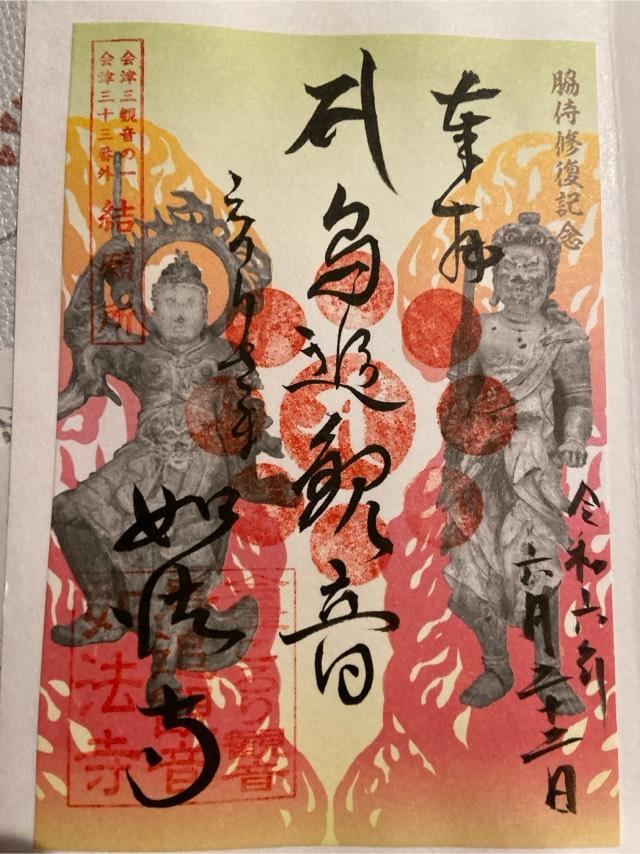 脇侍修復記念
奉拝
令和六年
六月二十三日
鳥追観音
如法寺
会津三観音の一
会津三十三番外 結願所
鳥追観音
如法寺